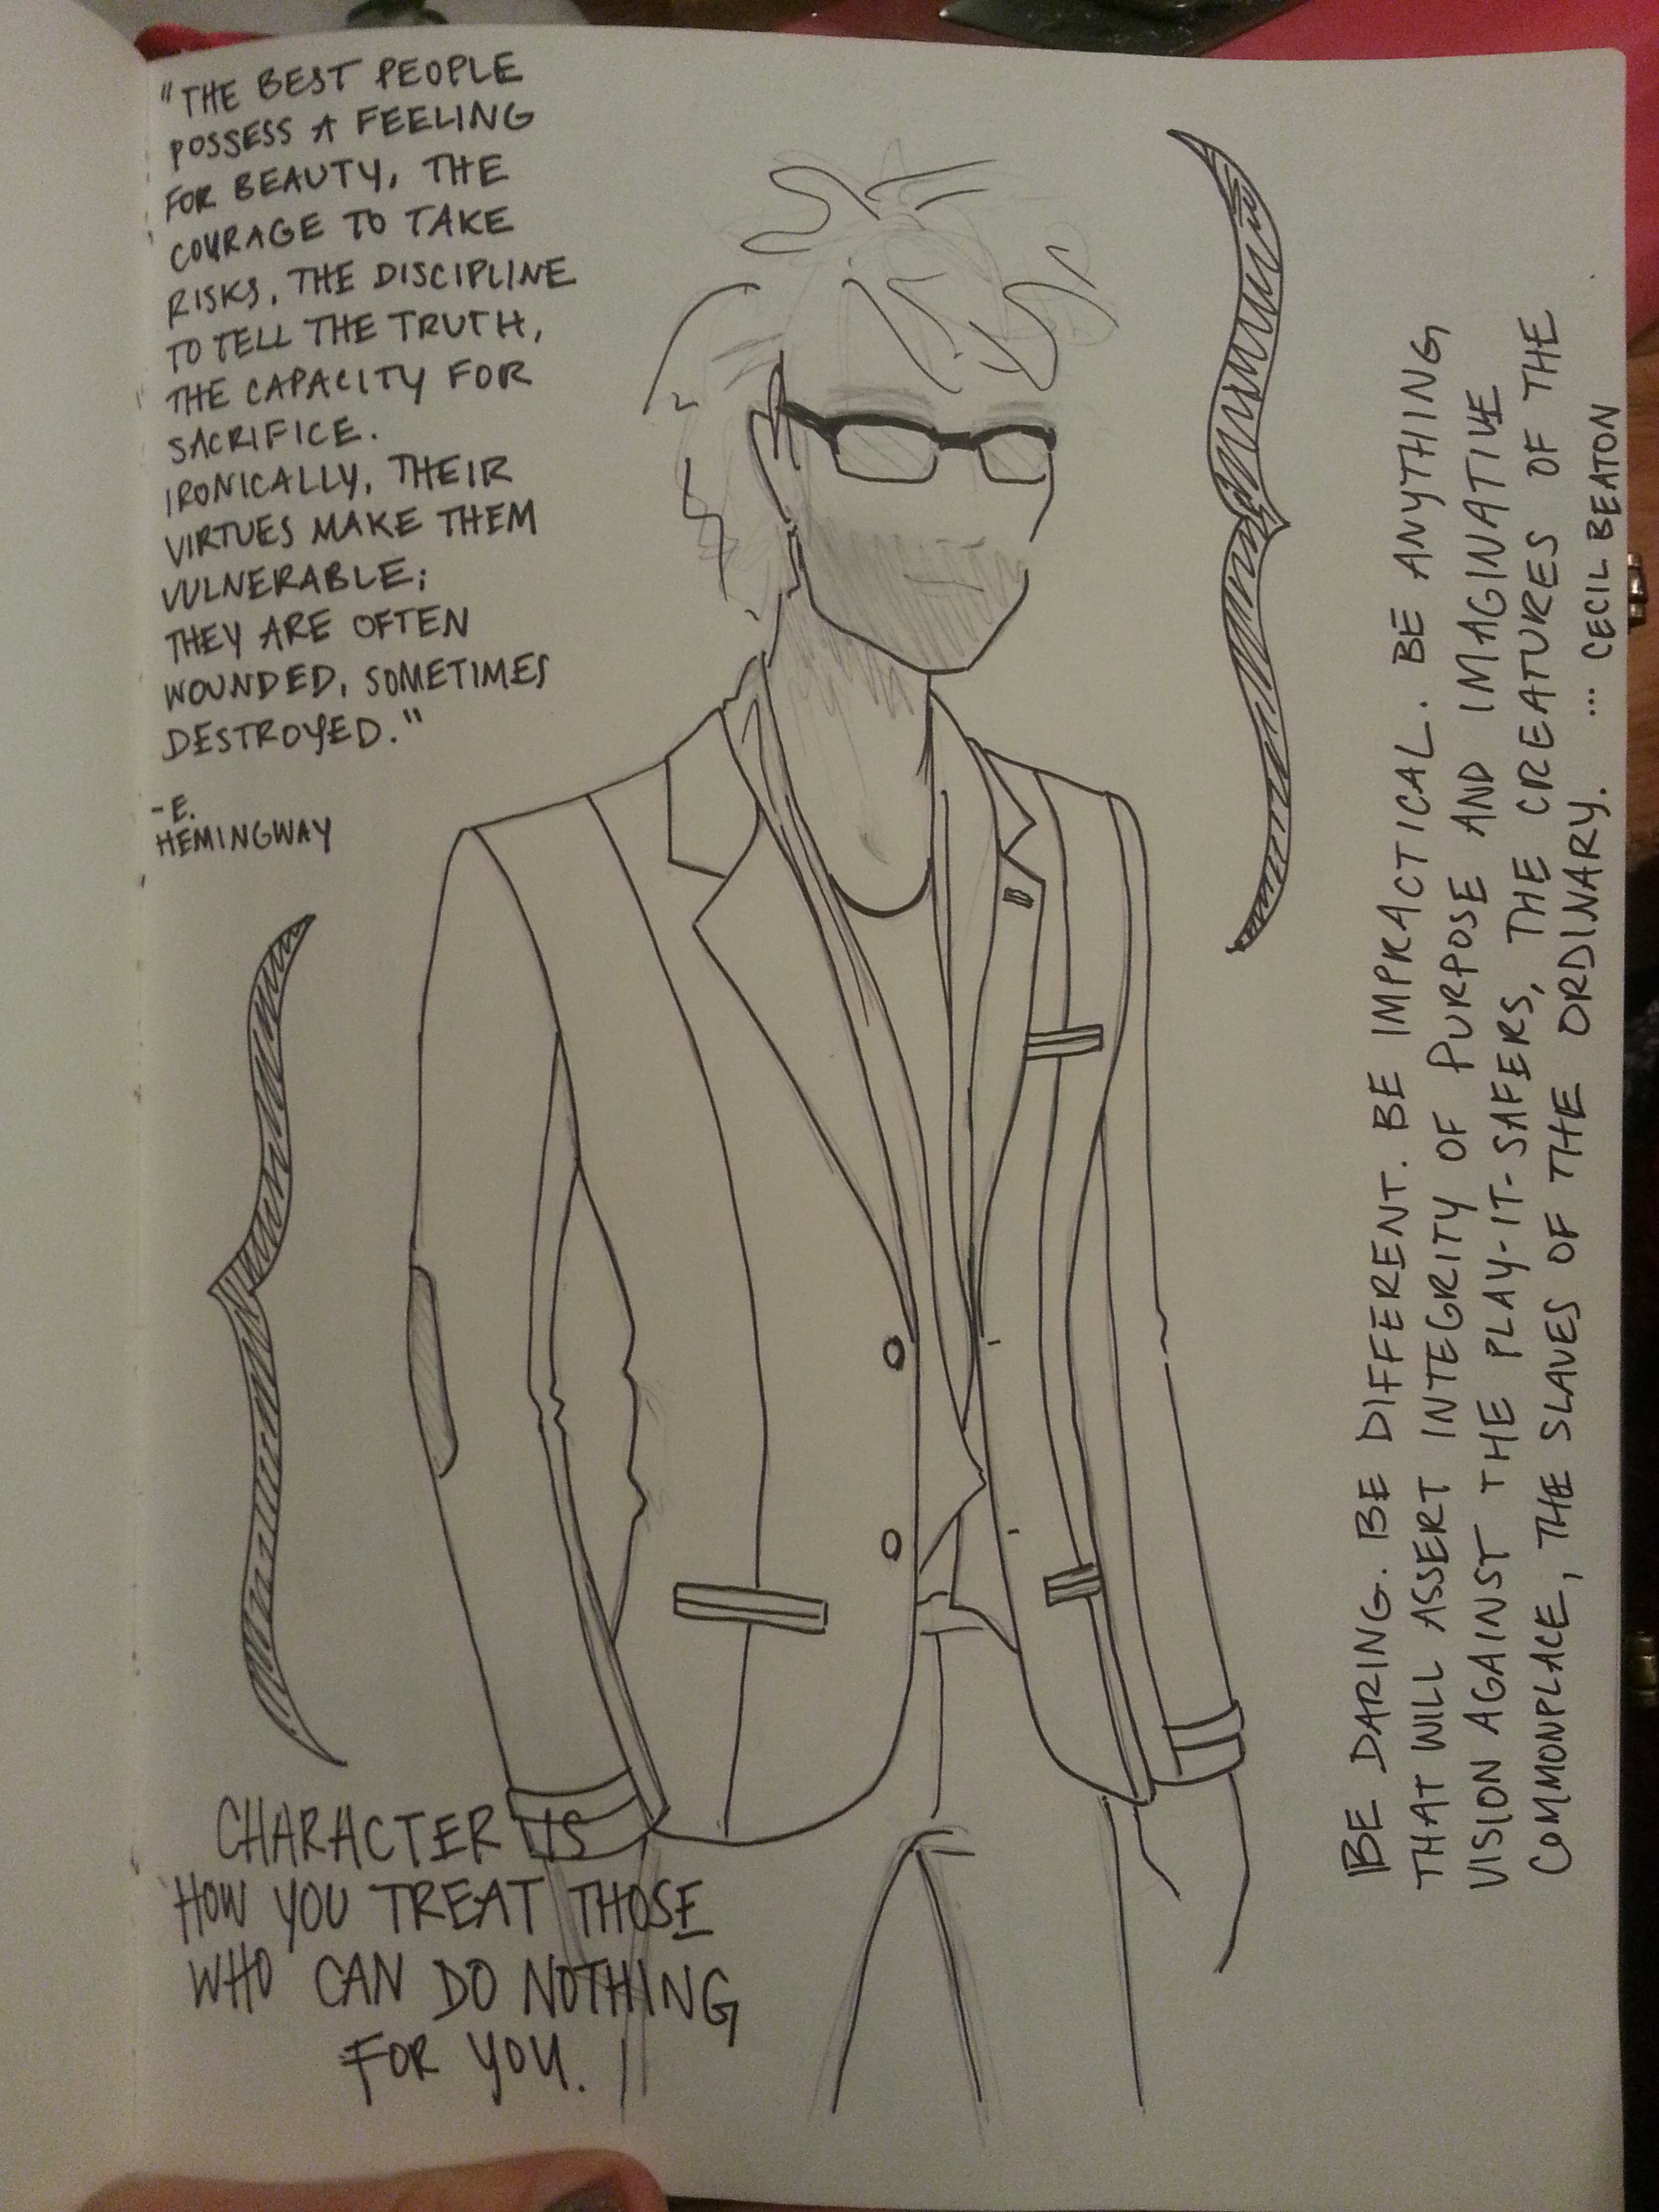 "THE BEST PEOPLE
POSSESS A FEELING
FOR BEAUTY, THE
COURAGE TO TAKE
RISKS, THE DISCIPLINE
TO TELL THE TRUTH,
THE CAPACITY FOR
SACRIFICE.
IRONICALLY, THEIR
VIRTUES MAKE THEM
VULNERABLE;
THEY ARE OFTEN
WOUNDED, SOMETIMES
DESTROYED."
-E.
HEMINGWAY
CHARACTER IS
HOW YOU TREAT THOSE
WHO CAN DO NOTHING
FOR YOU.
BE DARING. BE DIFFERENT. BE IMPRACTICAL. BE ANYTHING
THAT WILL ASSERT INTEGRITY OF PURPOSE AND IMAGINATIVE
VISION AGAINST THE PLAY-IT-SAFERS, THE CREATURES OF THE
COMMONPLACE, THE SLAVES OF THE ORDINARY. ... CECIL BEATON